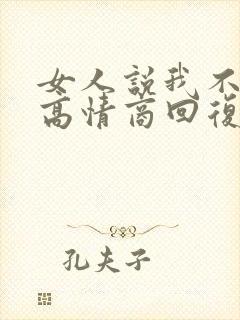 女人説我不
高情商回復
孔夫子